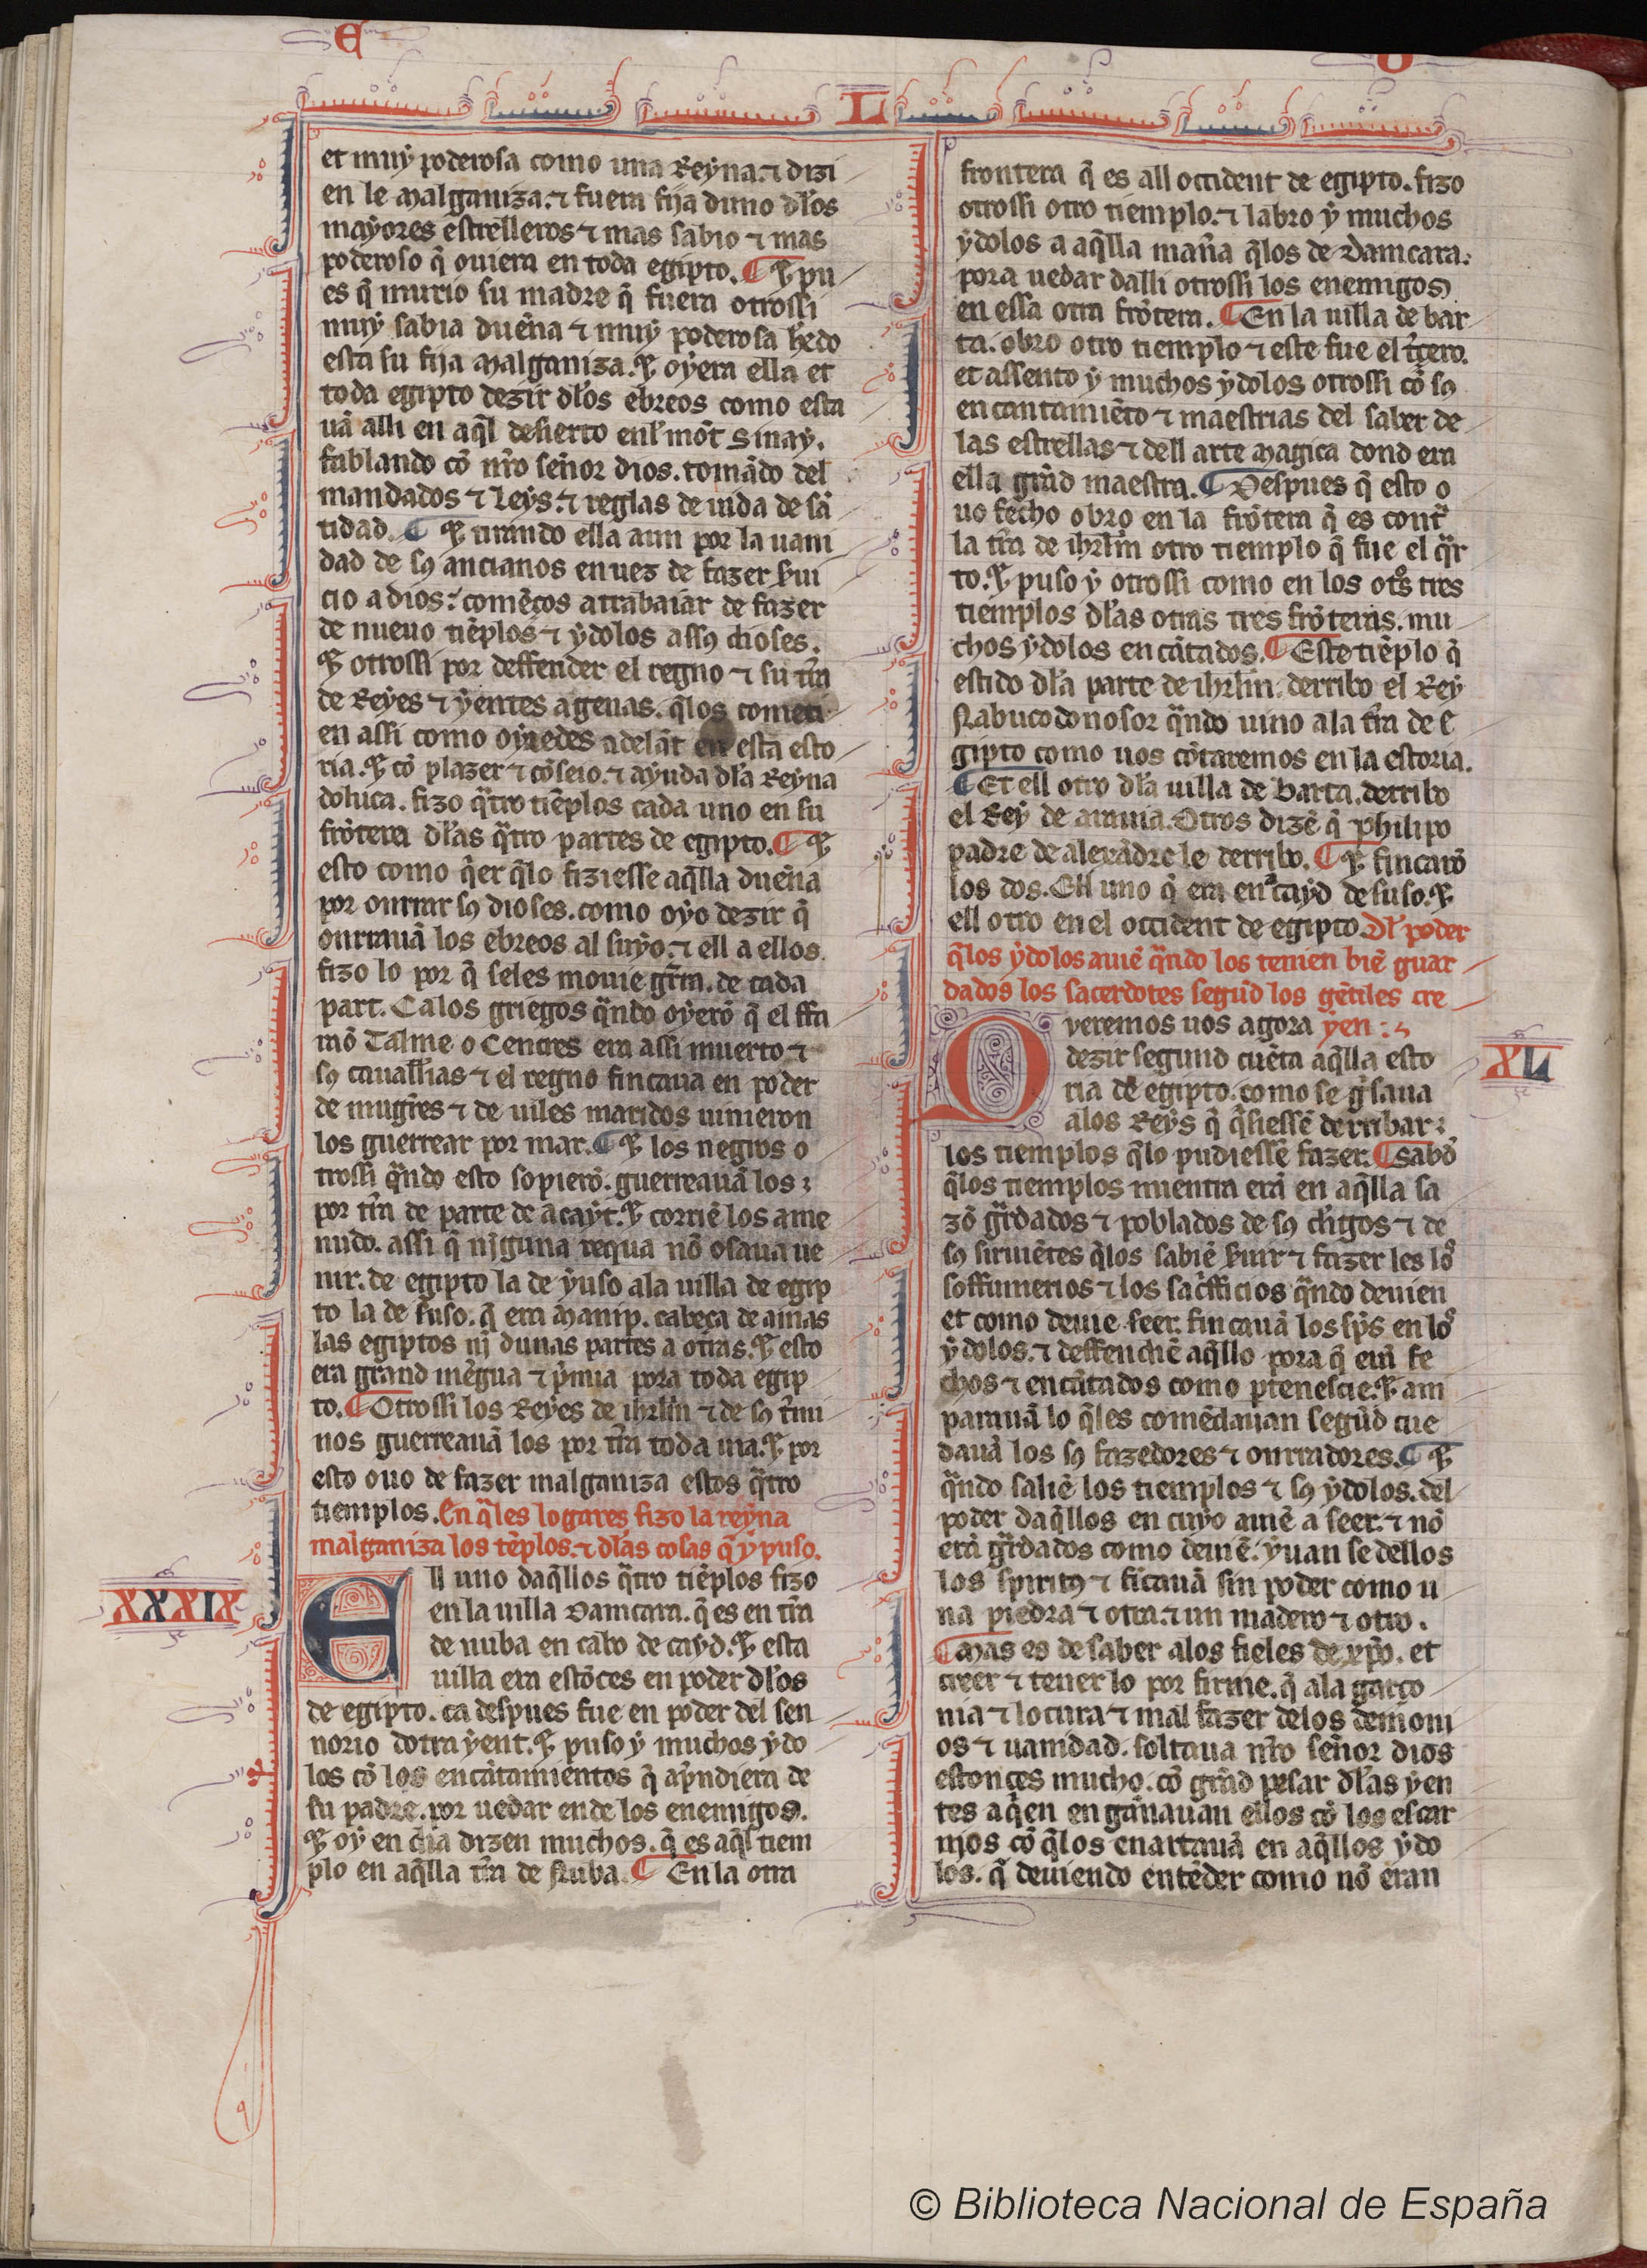 E
L
et muy poderosa como una Reyna. ⁊ dizi
en le malganiza. ⁊ fuera fija duno dłos
mayores estrelleros ⁊ mas sabio ⁊ mas
poderoso q̃ ouiera en toda egipto. ¶ ⁊ pu
es q̃ murio su madre q̃ fuera otrossi
muy sabia dueña ⁊ muy poderosa h̃edo
esta su fija malganiza. ⁊ oyera ella et
toda egipto dezir dłos ebreos como esta
uã alli en aq̃l desierto enł mõt sinay.
fablando cõ nr̃o señor dios. tomãdo del
mandados ⁊ leys. ⁊ reglas de uida de sã
tidad. ¶ ⁊ tirando ella aun por la uani
dad de sꝯ ancianos en uez de fazer ẜui
cio a dios: comẽços a trabaiar de fazer
de nueuo tẽplos ⁊ ydolos assꝯ dioses.
⁊ otrossi por deffender el regno ⁊ su tr̃ra
de Reyes ⁊ yentes agenas. q̃los cometi
en assi como oyredes adelãt en esta esto
ria. ⁊ cõ plazer ⁊ cõseio. ⁊ ayuda dła Reyna
doluca. fizo q̃tro tiẽplos cada uno en su
frõtera dłas q̃tro partes de egipto. ¶ ⁊
esto como q̃er q̃lo fiziesse aq̃lla dueña
por onrrar sꝯ dioses. como oyo dezir q̃
onrrauã los ebreos al suyo. ⁊ ell a ellos
fizo lo por q̃ seles mouie gr̃ra. de cada
part. Ca los griegos q̃ndo oyerõ q̃ el ffa
raõ Talme o Cencres era assi muerto ⁊
sꝯ cauałłias ⁊ el regno fincaua en poder
de mugr̃es ⁊ de uiles maridos uinieron
los guerrear por mar. ¶ ⁊ los negros o
trossi q̃ndo esto sopierõ. guerreauã los
por tr̃ra de parte de acayt. ⁊ corriẽ los ame
nudo. assi q̃ ninguna requa nõ osaua ue
nir. de egipto la de yuso ala uilla de egip
to la de suso. q̃ era manip. cabeça de amas
las egiptos ni dunas partes a otras. ⁊ esto
era grand mẽgua ⁊ p̃mia pora toda egip
to. ¶ Otrossi los Reyes de ihrłm ⁊ de sꝯ tr̃mi
nos guerreauã los por tr̃ra toda uia. ⁊ por
esto ouo de fazer malganiza estos q̃tro
tiemplos. En q̃les logares fizo la reyna
malganiza los tẽplos. ⁊ dłas cosas q̃ y puso.
XXXIX
Ell uno daq̃llos q̃tro tiẽplos fizo
en la uilla Damcara. q̃ es en tr̃ra
de nuba en cabo de cayd. ⁊ esta
uilla era estõces en poder dłos
de egipto. ca despues fue en poder del sen
norio dotra yent. ⁊ puso y muchos ydo
los cõ los encãtamientos q̃ ap̃ndiera de
su padre. por uedar ende los enemigos.
⁊ oy en dia dizen muchos. q̃ es aq̃l tiem
plo en aq̃lla tr̃ra de Nuba. ¶ En la otra
frontera q̃ es all occident de egipto. fizo
otrossi otro tiemplo. ⁊ labro y muchos
ydolos a aq̃lla mañ̃a q̃los de Damcara.
pora uedar dalli otrossi los enemigos
en essa otra frõtera. ¶ En la uilla de bar
ta. obro otro tiemplo ⁊ este fue el t̃çero.
et assento y muchos ydolos otrossi cõ sꝯ
encantamiẽto ⁊ maestrias del saber de
las estrellas ⁊ dell arte magica dond era
ella grãd maestra. ¶ Despues q̃ esto o
uo fecho obro en la frõtera q̃ es cont̃
la tr̃ra de ihrłm otro tiemplo q̃ fue el q̃r
to. ⁊ puso y otrossi como en los otr̃s tres
tiemplos dłas otras tres frõteras. mu
chos ydolos encãtados. ¶ Este tiẽplo q̃
estido dła parte de ihrłm. derribo el Rey
Nabucodonosor q̃ndo uino ala tr̃ra de e
gipto como uos cõtaremos en la estoria.
¶ Et ell otro dła uilla de Barta. derribo
el Rey de armia. Otros dizẽ q̃ philipo
padre de alexãdre le derribo. ¶ ⁊ fincarõ
los dos. Ell uno q̃ era en cayd de suso. ⁊
ell otro en el occident de egipto. Dł poder
q̃los ydolos auiẽ q̃ndo los tenien biẽ guar
dados los sacerdotes segũd los gẽtiles cre
XL
Queremos uos agora yen:
dezir segund cuẽta aq̃lla esto
ria de egipto. como se g̃saua
alos Reys q̃ q̃siessẽ derribar
los tiemplos q̃lo pudiessẽ fazer. ¶ Sabʼ
q̃los tiemplos mientra erã en aq̃lla sa
zõ g̃rdados ⁊ poblados de sꝯ cłigos ⁊ de
sꝯ siruiẽtes q̃los sabiẽ ẜuir ⁊ fazer les los
soffumerios ⁊ los sac̃fficios q̃ndo deuien
et como deuie seer. fincauã los sp̃s en los
ydolos. ⁊ deffendiẽ aq̃llo pora q̃ erã fe
chos ⁊ encãtados como p̃tenescie. ⁊ am
parauã lo q̃les comẽdauan segũd cue
dauã los sꝯ fazedores ⁊ onrradores. ¶ ⁊
q̃ndo saliẽ los tiemplos ⁊ sꝯ ydolos. del
poder daq̃llos en cuyo auiẽ a seer. ⁊ nõ
erã g̃rdados como deuiẽ. yuan se dellos
los spiritꝯ ⁊ ficauã sin poder como u
na piedra ⁊ otra. ⁊ un madero ⁊ otro.
¶ Mas es de saber alos fieles de xp̃o. et
creer ⁊ tener lo por firme. q̃ ala garço
nia ⁊ locura ⁊ mal fazer delos demoni
os ⁊ uanidad. soltaua nr̃o señor dios
estonçes mucho. cõ grãd pesar dłas yen
tes aq̃en engañauan ellos cõ los escar
nios cõ q̃los enartauã en aq̃llos ydo
los. q̃ deuiendo entẽder como nõ eran
© Biblioteca Nacional de España